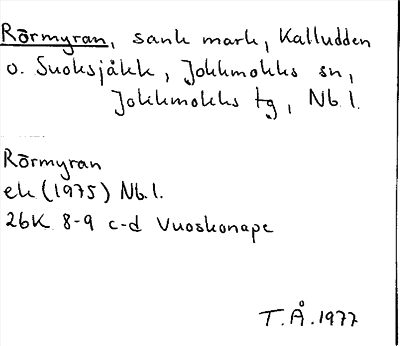 Rörmyran, sank mark, Kalludden
o. Suoksjåkk, Jokkmokks sn,
Jokkmokks tg, Nb.l.
Rörmyran
ek (1975) Nb.l.
26K 8-9 c-d Vuoskonape
T.Å.1977